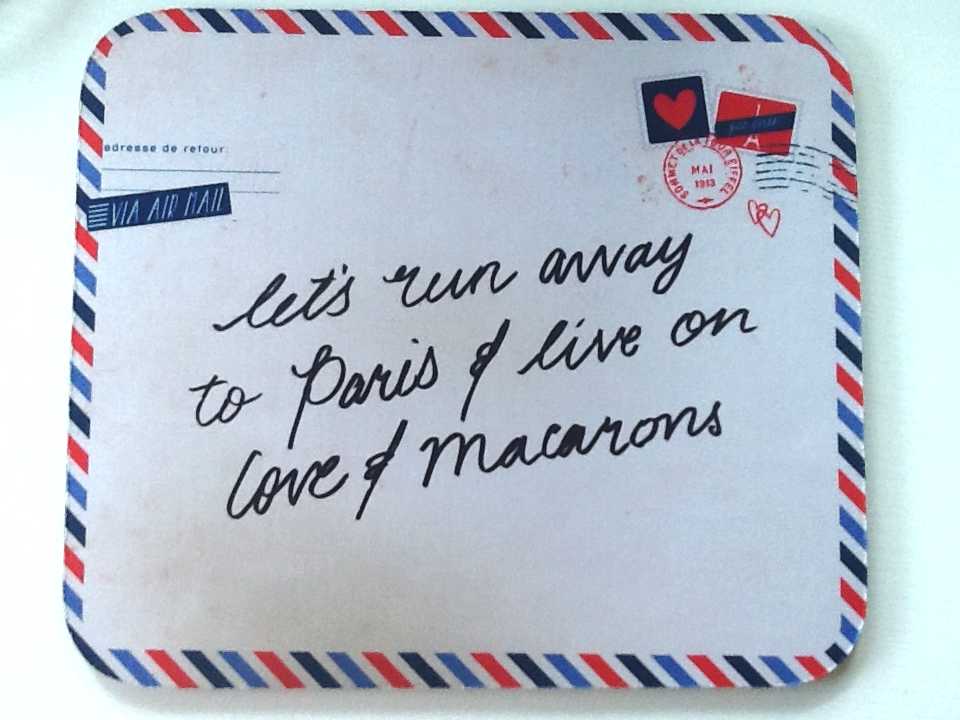 adresse de retour:
VIA AIR MAIL
SOMMET DE LA TOUR EIFFEL
MAI
1913
let's run away
to Paris & live on
love & macarons